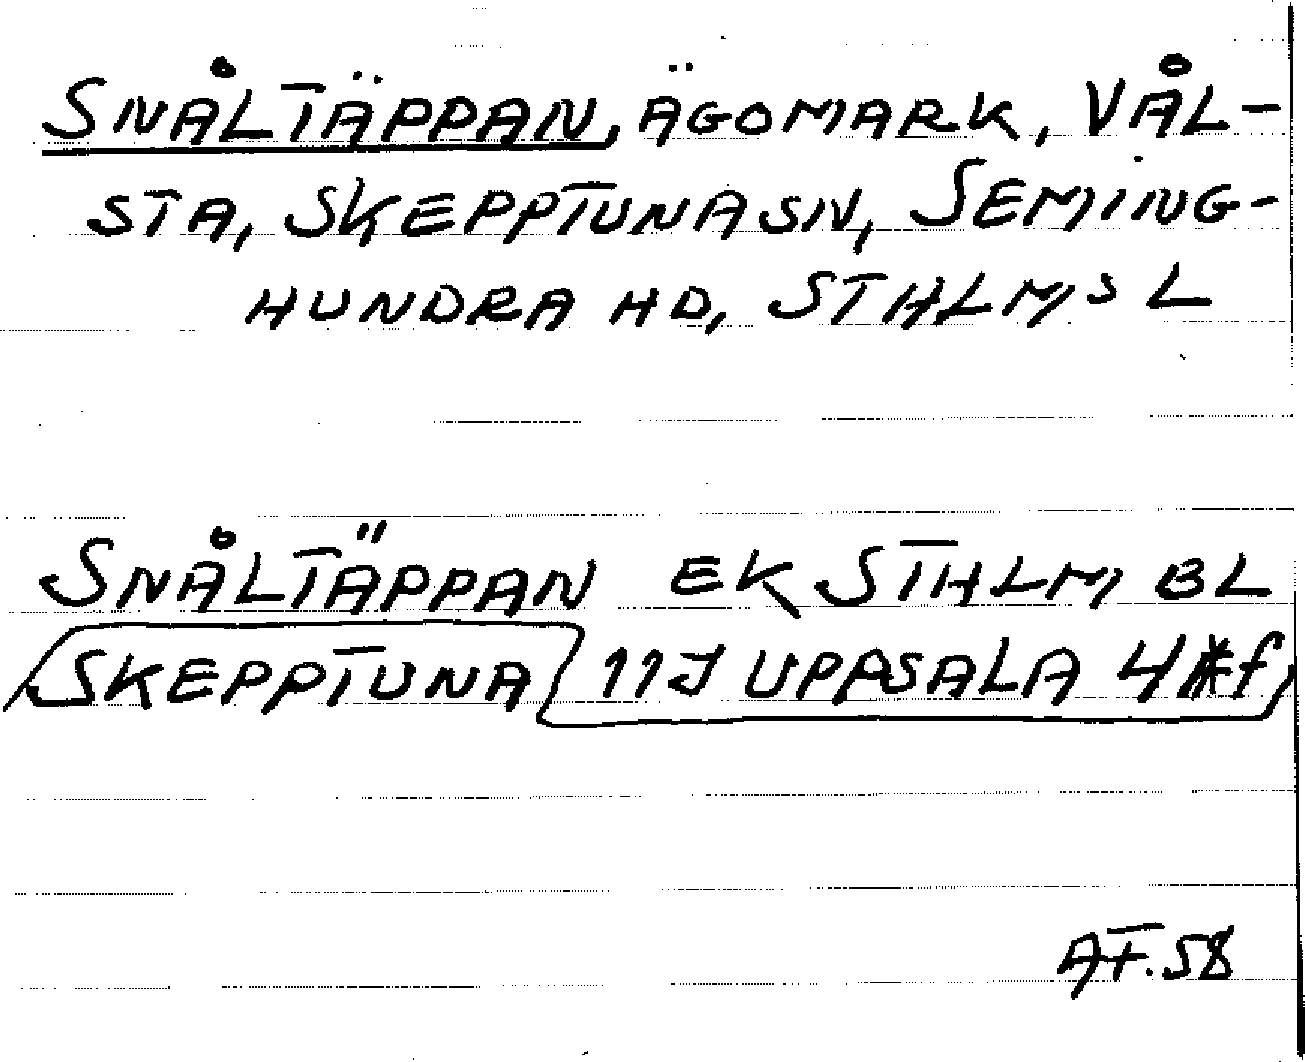 SNÅLTÄPPAN, ÄGOMARK, VÅL-
STA, SKEPPTUNA SN, SEMING-
HUNDRA HD, STHLMS L
SNÅLTÄPPAN EK STHLM BL
SKEPPTUNA 11J UPPSALA 4 f
AF.58